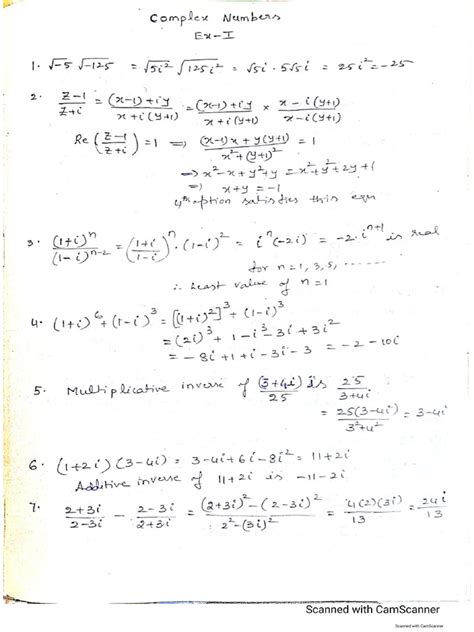 Complex Numbers
Ex-I
1. √-5 √-125 = √5i² √125i² = √5i · 5√5i = 25i² = -25
2. (z-1)/(z+i) = ((x-1)+iy)/(x+i(y+1)) = ((x-1)+iy)/(x+i(y+1)) × (x-i(y+1))/(x-i(y+1))
Re((z-1)/(z+i)) = 1 ⇒ ((x-1)x+y(y+1))/(x²+(y+1)²) = 1
⇒ x²-x+y²+y = x²+y²+2y+1
⇒ x+y = -1
4th option satisfies this eqn
3. (1+i)^n/(1-i)^(n-2) = ((1+i)/(1-i))^n · (1-i)² = i^n(-2i) = -2·i^(n+1) is real
for n = 1, 3, 5, ......
∴ Least value of n = 1
4. (1+i)⁶ + (1-i)³ = [(1+i)²]³ + (1-i)³
= (2i)³ + 1 - i³ - 3i + 3i²
= -8i + 1 + i - 3i - 3 = -2 - 10i
5. Multiplicative inverse of (3+4i)/25 is 25/(3+4i)
= 25(3-4i)/(3²+4²) = 3-4i
6. (1+2i)(3-4i) = 3-4i+6i-8i² = 11+2i
Additive inverse of 11+2i is -11-2i
7. (2+3i)/(2-3i) - (2-3i)/(2+3i) = ((2+3i)²-(2-3i)²)/(2²-(3i)²) = 4(2)(3i)/13 = 24i/13
Scanned with CamScanner
Scanned with CamScanner